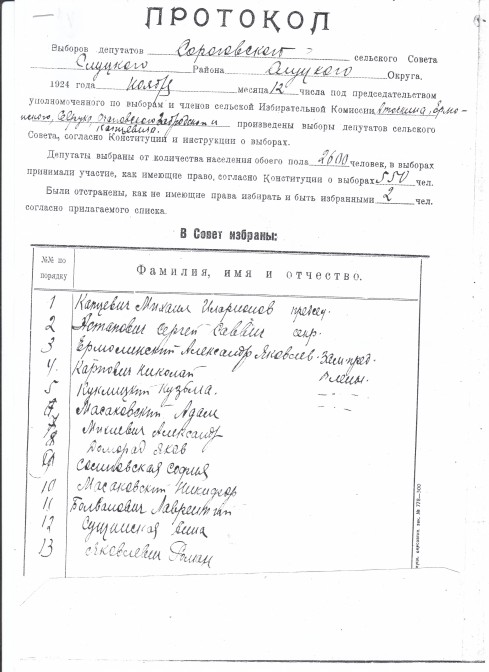 ПРОТОКОЛ
Выборов депутатов Сороговского сельского Совета
Слуцкого Района Слуцкого Округа.
1924 года ноября месяца 12 числа под председательством
уполномоченного по выборам и членов сельской Избирательной Комиссии
произведены выборы депутатов сельского
Совета, согласно Конституции и инструкции о выборах.
Депутаты выбраны от количества населения обоего пола 2600 человек, в выборах
принимали участие, как имеющие право, согласно Конституции о выборах 550 чел.
Были отстранены, как не имеющие права избирать и быть избранными 2 чел.
согласно прилагаемого списка.
В Совет избраны:
№№ по порядку
Фамилия, имя и отчество.
1 Карцевич Михаил Иларионов председ.
2 Астапович Сергей Саввич секр.
3 Ермолинский Александр Яковлев. Зам. пред.
4. Карпович Николай Члены.
5 Куклицкий Кузьма.
Масаковский Адам
Михневич Александр
8 Домород Яков
9 Сосновская София
10 Масаковский Никифор
11 Болванович Лаврентий
12 Сущинская
13 Яковлевич Роман